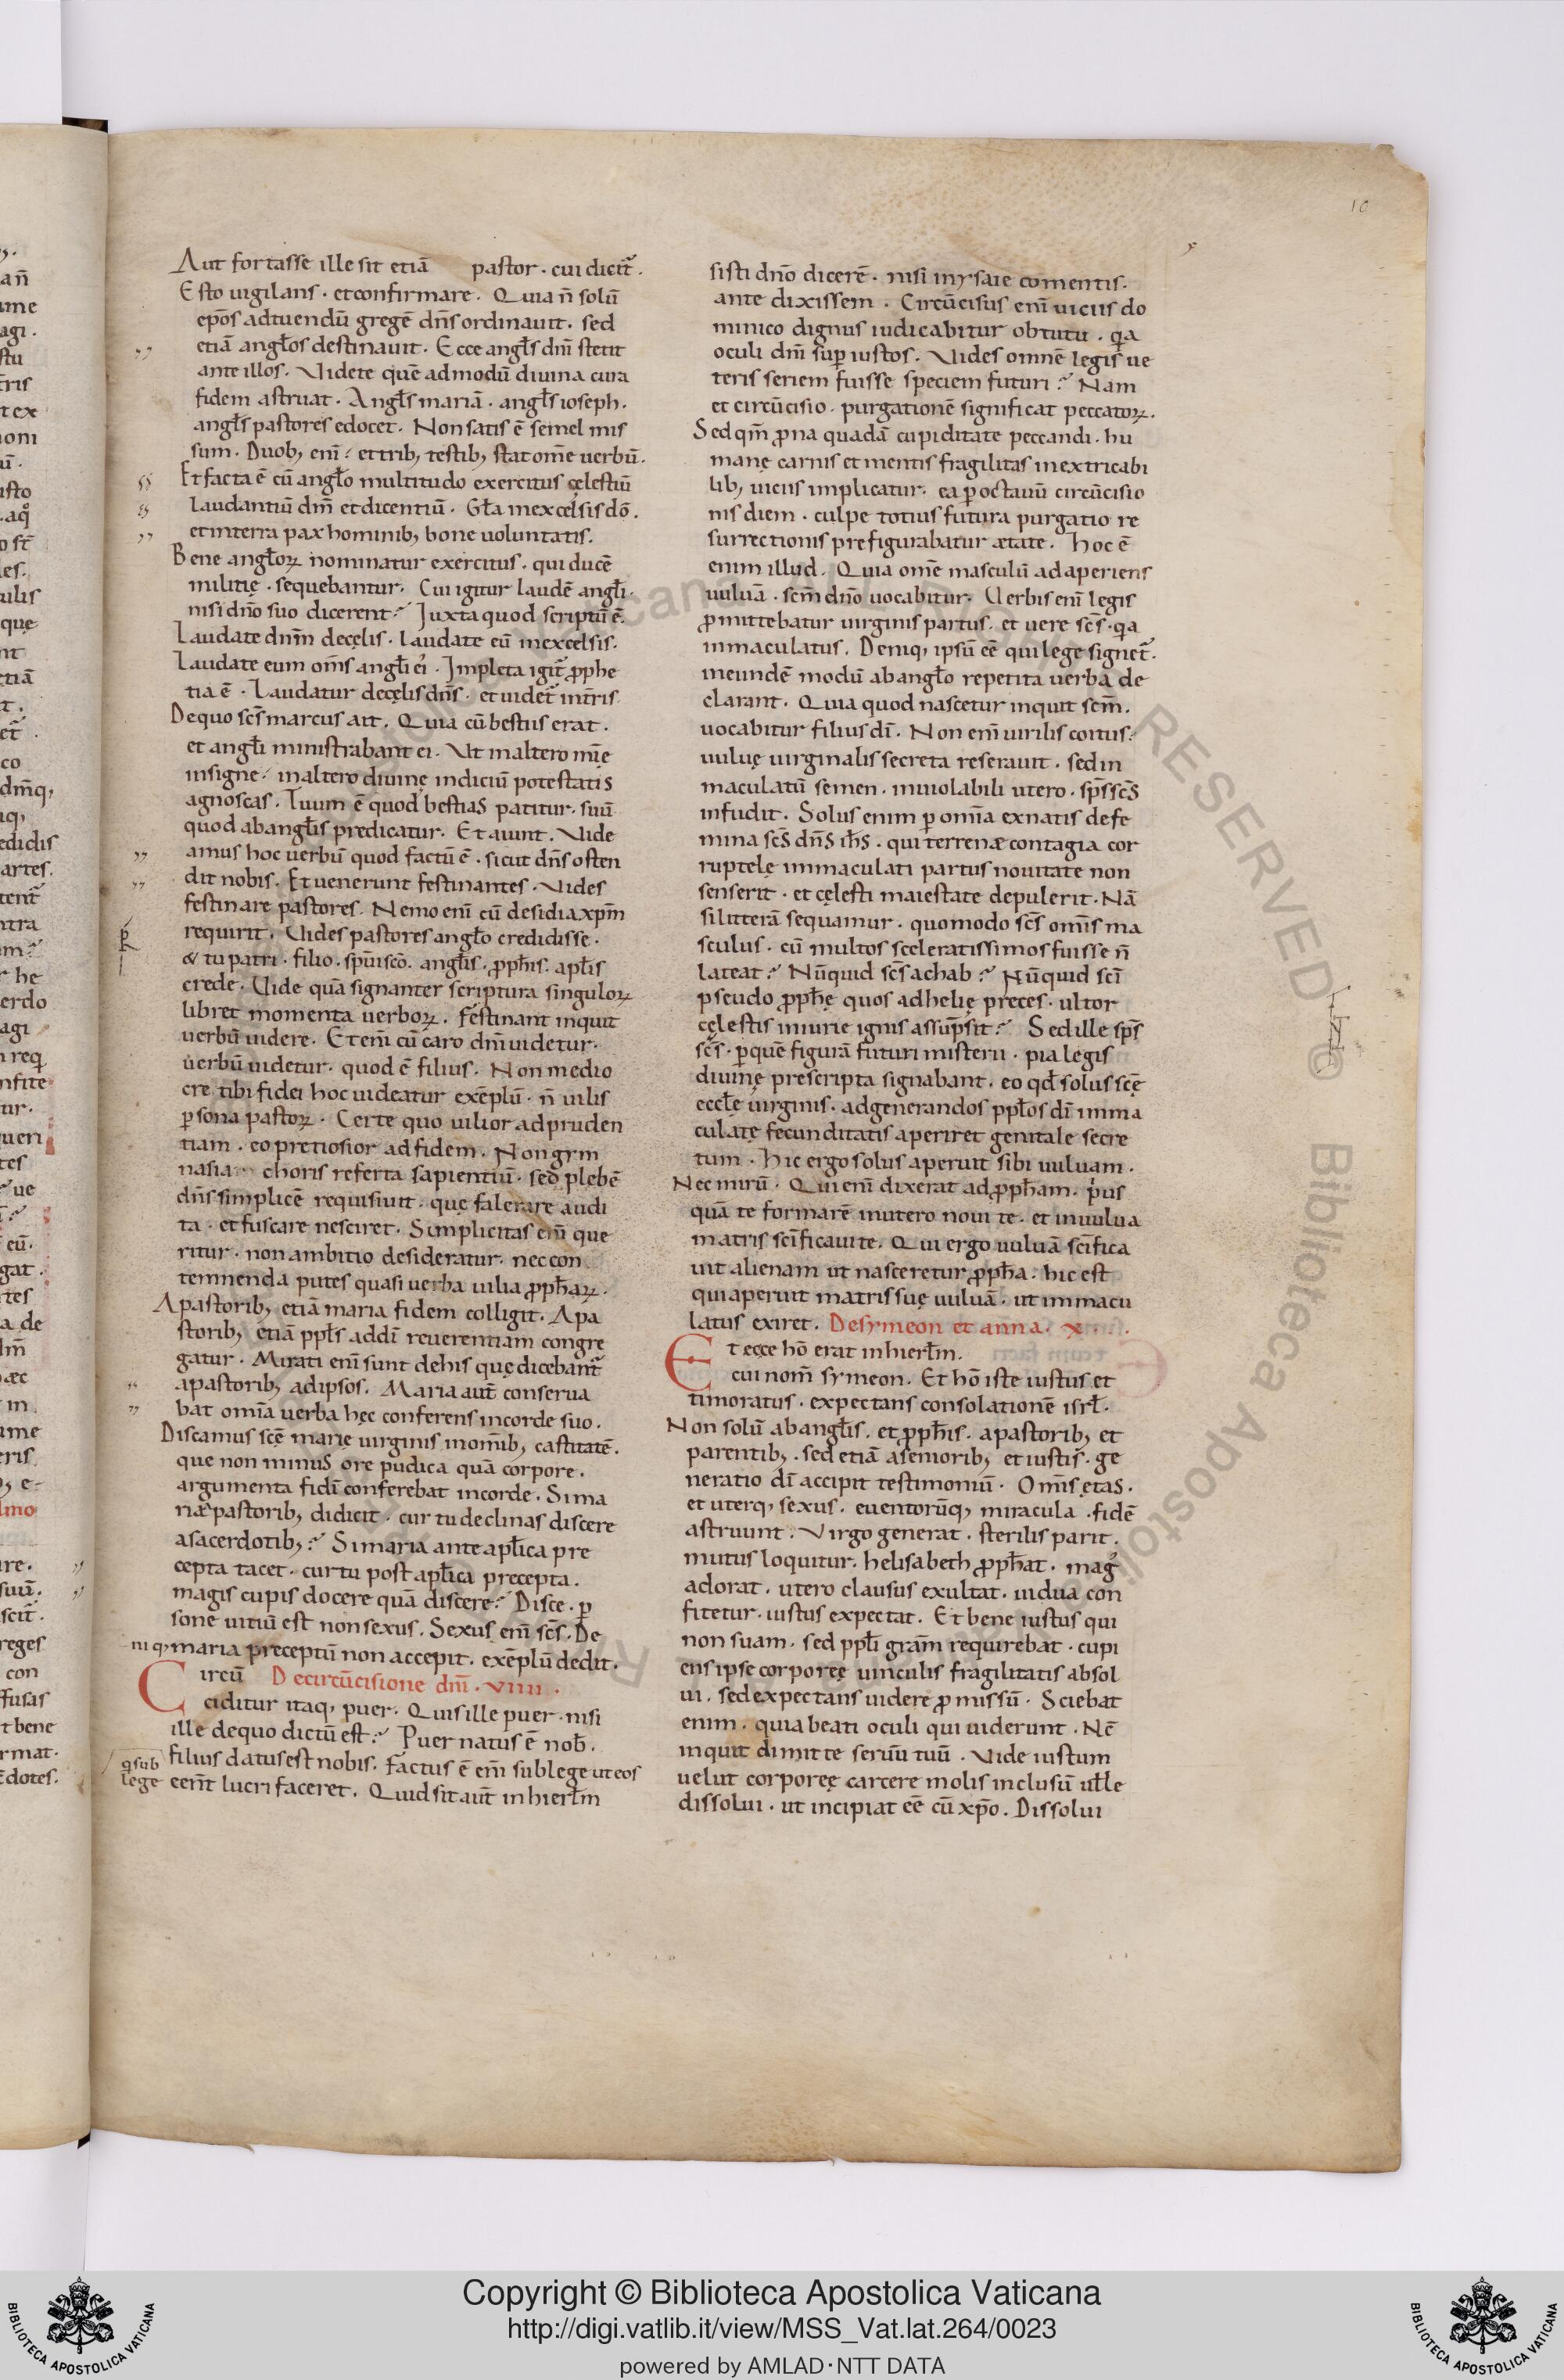 10
Aut fortasse ille sit etiā pastor · cui dicit᷑ .
Esto uigilans · et confirmare . Quia n̄ solū
ep̄os ad tuendū gregē dn̄s ordinauit . sed
etiā angl̄os destinauit . Ecce angl̄s dn̄i stetit
ante illos . Videte quē admodū diuina cura
fidem astruat . Angl̄s mariā . angl̄s ioseph .
angl̄s pastores edocet . Non satis ē semel mis
sum . Duob; enī · et trib; testib; stat om̄e uerbū .
Et facta ē cū angl̄o multitudo exercitus cęlestiū
laudantiū dm̄ et dicentiū . Gl̄a in excelsis dō .
et in terra pax hominib; bone uoluntatis .
Bene angl̄oꝝ nominatur exercitus . qui ducē
militię . sequebantur . Cui igitur laudē angl̄i .
nisi dn̄o suo dicerent ? Juxta quod scriptū ē .
Laudate dn̄m de cęlis . laudate eū in excelsis .
Laudate eum om̄s angl̄i ei᷒ . Impleta igit᷑ ꝓphe
tia ē . Laudatur de cęlis dn̄s . et uidet᷑ in tr̄is .
De quo sc̄s marcus ait . Quia cū bestiis erat .
et angl̄i ministrabant ei . Ut in altero mīę
insigne · in altero diuinę indiciū potestatis
agnoscas . Tuum ē quod bestias patitur . suū
quod ab angl̄is predicatur . Et aiunt . Vide
amus hoc uerbū quod factū ē . sicut dn̄s osten
dit nobis . Et uenerunt festinantes . Vides
festinare pastores . Nemo enī cū desidia xp̄m
requirit . Vides pastores angl̄o credidisse .
& tu patri . filio . spūi scō . angl̄is . ꝓph̄is . apl̄is
crede . Uide quā signanter scriptura singuloꝝ
libret momenta uerboꝝ . Festinant inquit
uerbū uidere . Et enī cū caro dn̄i uidetur .
uerbū uidetur . quod ē filius . Non medio
cre tibi fidei hoc uideatur exēplū . n̄ uilis
ꝑsona pastoꝝ . Certe quo uilior ad pruden
tiam . eo pretiosior ad fidem . Non gim
nasia choris referta sapientiū . sed plebē
dn̄s simplicē requisiuit . quę falerare audi
ta . et fuscare nesciret . Simplicitas enī que
ritur . non ambitio desideratur . nec con
temnenda putes quasi uerba uilia ꝓph̄aꝝ .
A pastorib; etiā maria fidem colligit . A pa
storib; etiā ppl̄s ad dī reuerentiam congre
gatur . Mirati enī sunt de his quę dicebant᷑
a pastorib; ad ipsos . Maria aut̄ conserua
bat omīa uerba hęc conferens in corde suo .
Discamus scē marię uirginis in om̄ib; castitatē .
que non minus ore pudica quā corpore .
argumenta fidī conferebat in corde . Si ma
riæ pastorib; didicit . cur tu declinas discere
a sacerdotib; ? Si maria ante apl̄ica pre
cepta tacet . cur tu post apl̄ica precepta .
magis cupis docere quā discere ? Disce . ꝑ
sone uitiū est non sexus . Sexus enī sc̄s . De
niq; maria preceptū non accepit . exēplū dedit .
Circū De circūcisione dn̄i . VIIII .
ciditur itaq; puer . Quis ille puer . nisi
ille de quo dictū est ? Puer natus ē nob̄ .
filius datus est nobis . Factus ē enī sub lege ut eos
q̄ sub
lege eent̄ lucri faceret . Quid sit aut̄ in hierl̄m
sisti dn̄o dicerē . nisi in ysaie comentis .
ante dixissem . Circūcisus enī uiciis do
minico dignus iudicabitur obtutu . qa
oculi dn̄i suꝑ iustos . Vides omnē legis ue
teris seriem fuisse speciem futuri ? Nam
et circūcisio . purgationē significat peccatoꝝ .
Sed qm̄ ꝓna quadā cupiditate peccandi . hu
manę carnis et mentis fragilitas inextricabi
lib; uiciis implicatur . ea ꝑ octauū circūcisio
nis diem . culpe totius futura purgatio re
surrectionis prefigurabatur ætate . Hoc ē
enim illud . Quia om̄e masculū adaperiens
uuluā . scm̄ dn̄o uocabitur . Uerbis enī legis
ꝓmittebatur uirginis partus . et uere sc̄s . qa
inmaculatus . Deniq; ipsū eē qui lege signet᷑ .
in eundē modū ab angl̄o repetita uerba de
clarant . Quia quod nascetur inquit scm̄ .
uocabitur filius dī . Non enī uirilis coitus .
uuluę uirginalis secreta reserauit . sed in
maculatū semen . inuiolabili utero . sp̄s sc̄s
infudit . Solus enim ꝑ omīa ex natis de fe
mina sc̄s dn̄s ih̄s . qui terrenæ contagia cor
ruptelę immaculati partus nouitate non
senserit . et cęlesti maiestate depulerit . Nā
si litterā sequamur . quomodo sc̄s omīs ma
sculus . cū multos sceleratissimos fuisse n̄
lateat ? Nūquid sc̄s achab ? Nūquid scī
pseudo ꝓph̄ę quos ad helię preces . ultor
cęlestis iniurie ignis assūpsit ? Sed ille sp̄s
sc̄s . ꝑ quē figurā futuri misterii . pia legis
diuinę prescripta signabant . eo qd̄ solus scę̄
eccl̄ę uirginis . ad generandos ppl̄os dī imma
culatę fecunditatis aperiret genitale secre
tum . Hic ergo solus aperuit sibi uuluam .
Nec mirū . Qui enī dixerat ad ꝓph̄am . pͥus
quā te formarē in utero noui te . et in uulua
matris scīficaui te . Qui ergo uuluā scīfica
uit alienam ut nasceretur ꝓph̄a . hic est
qui aperuit matris suę uuluā . ut immacu
latus exiret . De symeon et anna . X .
Et ecce hō erat in hierl̄m .
cui nom̄ symeon . Et hō iste iustus et
timoratus . expectans consolationē isrl̄ .
Non solū ab angl̄is . et ꝓph̄is . a pastorib; et
parentib; . sed etiā a seniorib; et iustis . ge
neratio dī accipit testimoniū . Omīs ętas .
et uterq; sexus . euentorūq; miracula . fidē
astruunt . Virgo generat . sterilis parit .
mutus loquitur . helisabeth ꝓph̄at . mag᷒
adorat . utero clausus exultat . uidua con
fitetur . iustus expectat . Et bene iustus qui
non suam . sed ppl̄i gram̄ requirebat . cupi
ens ipse corporeę uinculis fragilitatis absol
ui . sed expectans uidere ꝓmissū . Sciebat
enim . quia beati oculi qui uiderunt . Nc̄
inquit dimitte seruū tuū . Vide iustum
uelut corporeę carcere molis inclusū uel̄le
dissolui . ut incipiat eē cū xp̄o . Dissolui
Copyright © Biblioteca Apostolica Vaticana
http://digi.vatlib.it/view/MSS_Vat.lat.264/0023
powered by AMLAD·NTT DATA
BIBLIOTECA APOSTOLICA VATICANA
BIBLIOTECA APOSTOLICA VATICANA